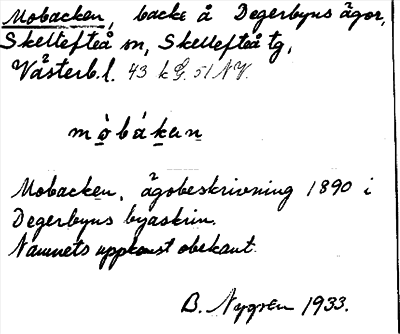 Mobacken, backe å Degerbyns ägor,
Skellefteå sn, Skellefteå tg,
Västerb.l. 43 kG. 51 NV.
mòbákan
Mobacken, ägobeskrivning 1890 i
Degerbyns byaskrin.
Namnets uppkomst obekant.
B. Nygren 1933.